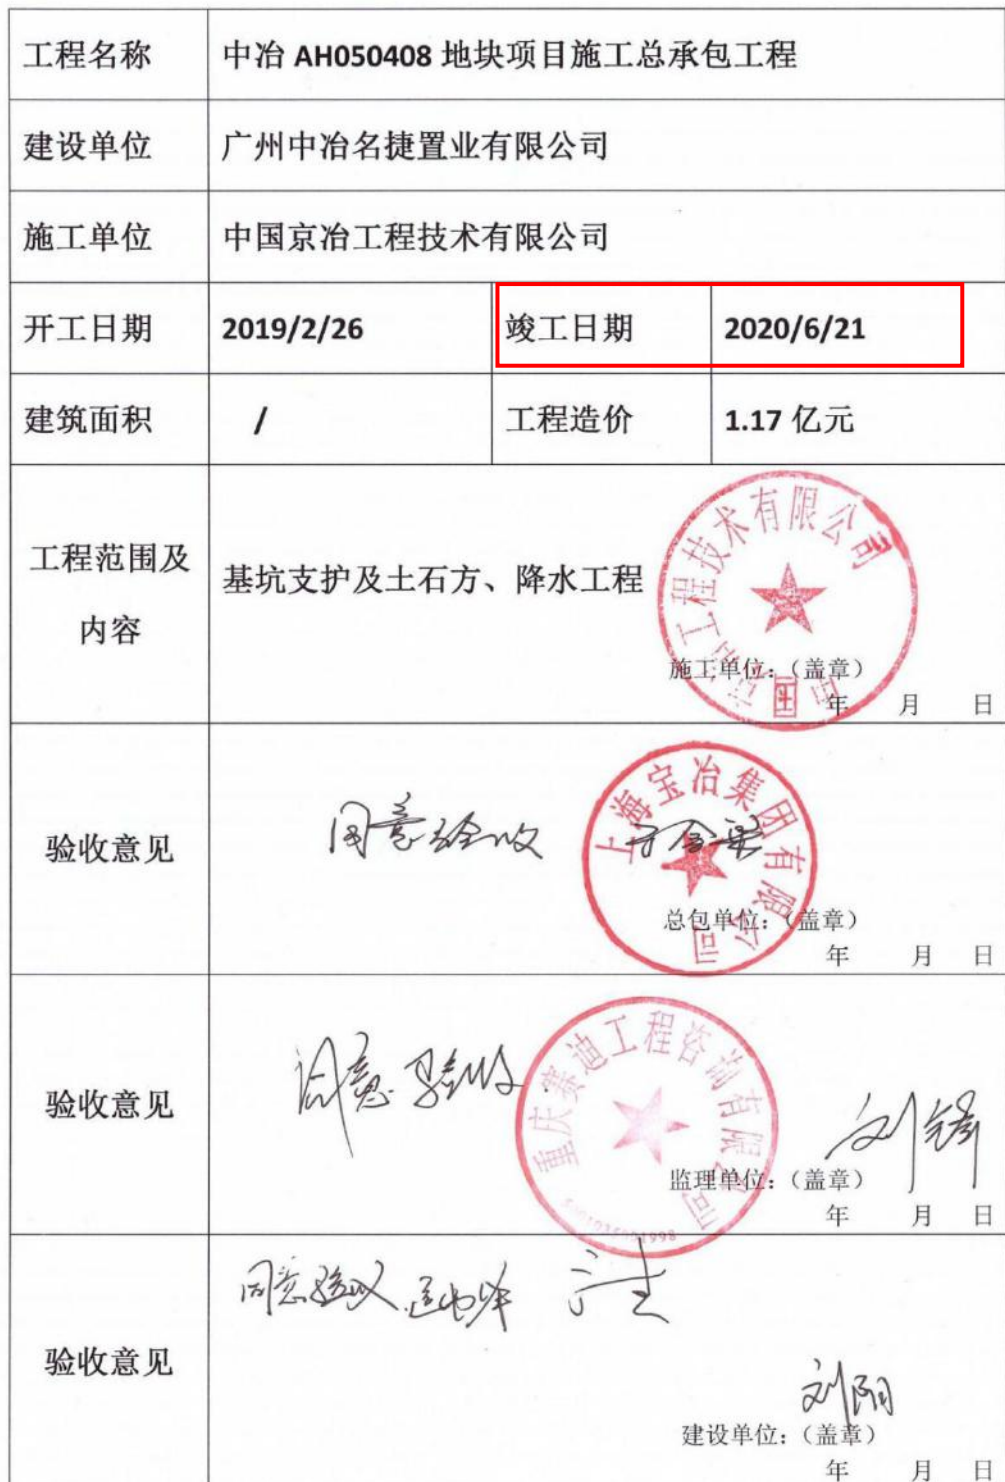 工程名称 中冶 AH050408 地块项目施工总承包工程
建设单位 广州中冶名捷置业有限公司
施工单位 中国京冶工程技术有限公司
开工日期 2019/2/26 竣工日期 2020/6/21
建筑面积 / 工程造价 1.17 亿元
工程范围及
内容
基坑支护及土石方、降水工程
中国京冶工程技术有限公司
施工单位：（盖章）
年 月 日
验收意见
同意验收
上海宝冶集团有限公司
总包单位：（盖章）
年 月 日
验收意见
同意验收
重庆赛迪工程咨询有限公司
刘锋
监理单位：（盖章）
年 月 日
验收意见
同意验收
刘阳
建设单位：（盖章）
年 月 日